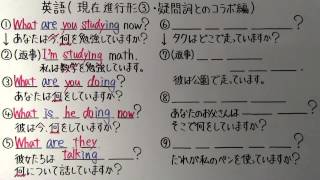 英語(現在進行形③・疑問詞とのコラボ編)
① What are you studying now?
↓ あなたは今何を勉強していますか?
②(返事) I'm studying math.
私は数学を勉強しています。
③ What are you doing?
あなたは何をしていますか?
④ What is he doing now?
彼は今、何をしていますか?
⑤ What are they
talking ?
彼女たちは
何について話していますか?
⑥ ?
↓ タクはどこで走っていますか?
⑦(返事) .
彼は公園で走っています。
⑧
?
あなたのお父さんは
そこで何をしていますか?
⑨ ?
だれが私のペンを使っていますか?